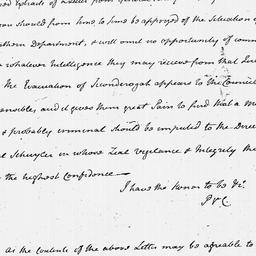 you should from time to time be apprized of the Situation of
thern Department, & will omit no opportunity of comm
whatever Intelligence they may receive from that
The Evacuation of Ticonderogah appears to the Council
ensible, and it gives them great Pain to find that a M
& probably criminal should be imputed to the Direc
l Schuyler in whose Zeal Vigilance & Integrity the
the highest Confidence—
I have the honor to be &c.
as the Contents of the above Letter may be agreable to